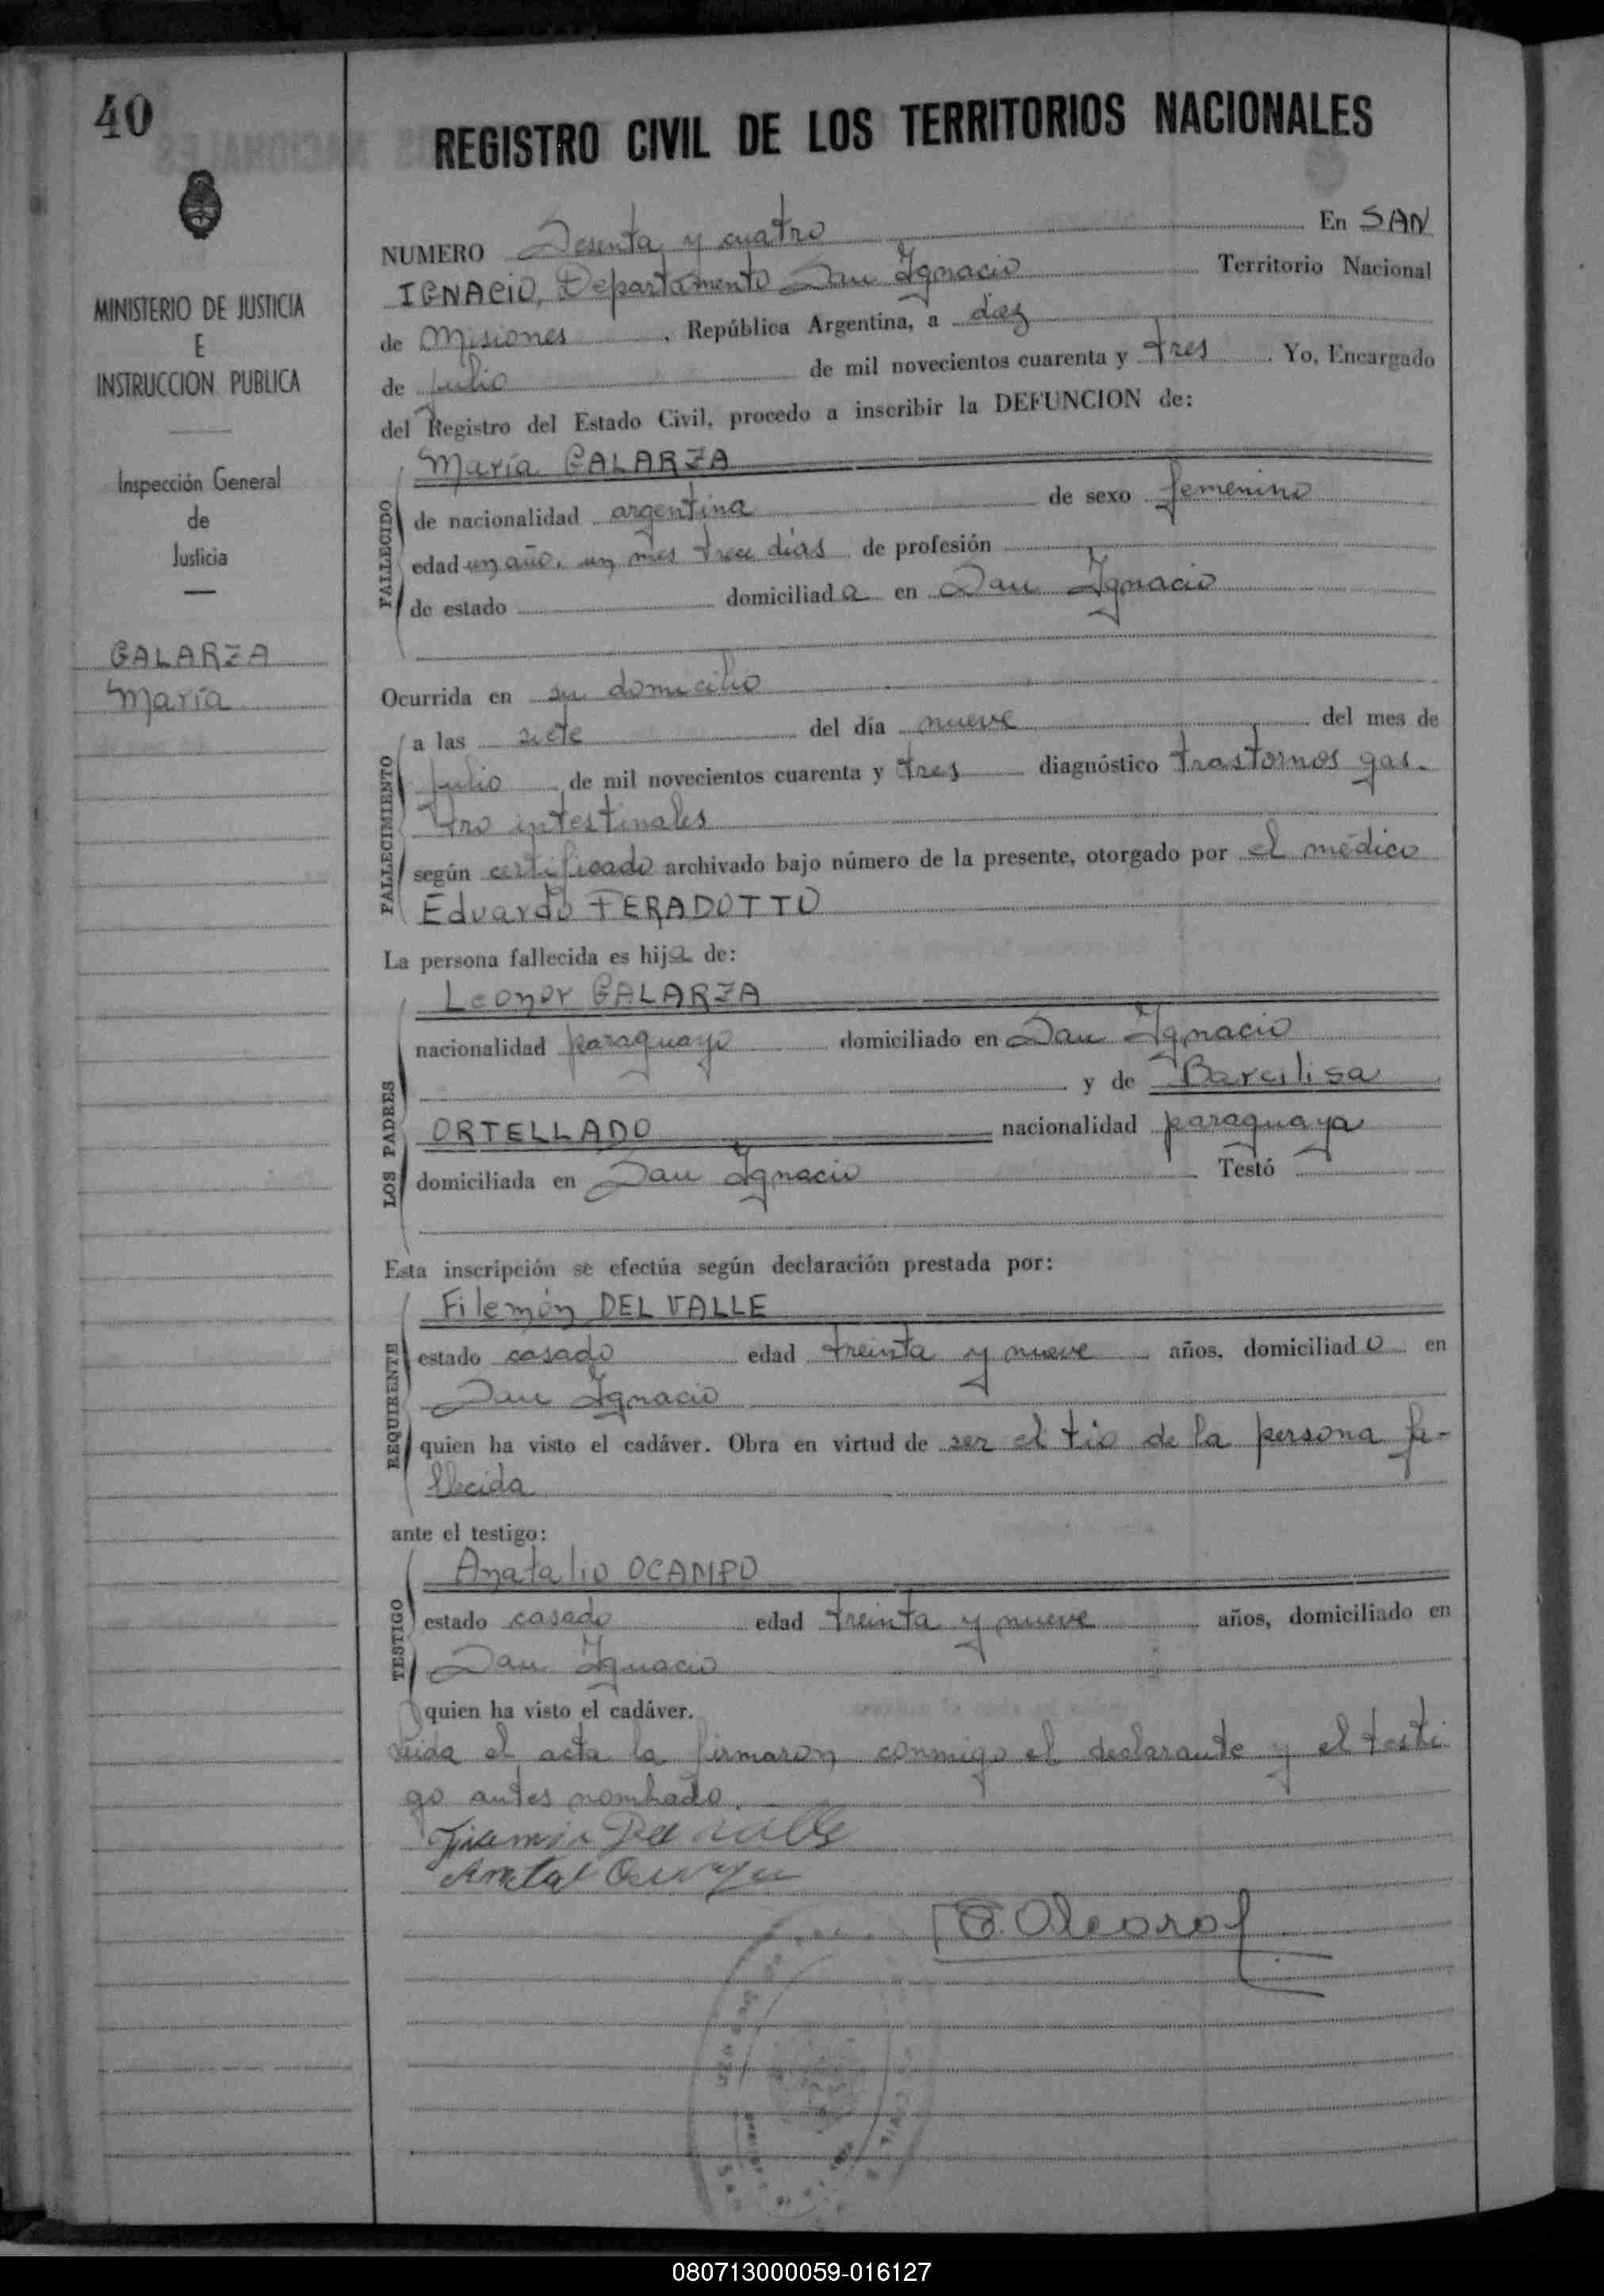 40
REGISTRO CIVIL DE LOS TERRITORIOS NACIONALES
MINISTERIO DE JUSTICIA
E
INSTRUCCION PUBLICA
Inspección General
de
Justicia
GALARZA
María
NUMERO Sesenta y cuatro En SAN
IGNACIO, Departamento San Ignacio Territorio Nacional
de Misiones, República Argentina, a diez
de julio de mil novecientos cuarenta y tres. Yo, Encargado
del Registro del Estado Civil, procedo a inscribir la DEFUNCION de:
FALLECIDO
María GALARZA
de nacionalidad argentina de sexo femenino
edad un año, un mes trece días de profesión
de estado domiciliada en San Ignacio
Ocurrida en su domicilio
FALLECIMIENTO
a las siete del día nueve del mes de
julio de mil novecientos cuarenta y tres diagnóstico trastornos gas-
tro intestinales
según certificado archivado bajo número de la presente, otorgado por el médico
Eduardo PERADOTTO
La persona fallecida es hija de:
LOS PADRES
Leonor GALARZA
nacionalidad paraguayo domiciliado en San Ignacio
y de Barcilisa
ORTELLADO nacionalidad paraguaya
domiciliada en San Ignacio Testó
Esta inscripción se efectúa según declaración prestada por:
REQUIRENTE
Filemón DEL VALLE
estado casado edad treinta y nueve años, domiciliado en
San Ignacio
quien ha visto el cadáver. Obra en virtud de ser el tio de la persona fa-
llecida
ante el testigo:
TESTIGO
Anatalio OCAMPO
estado casado edad treinta y nueve años, domiciliado en
San Ignacio
quien ha visto el cadáver.
Leida el acta la firmaron conmigo el declarante y el testi
go antes nombrado.
Del Valle
080713000059-016127